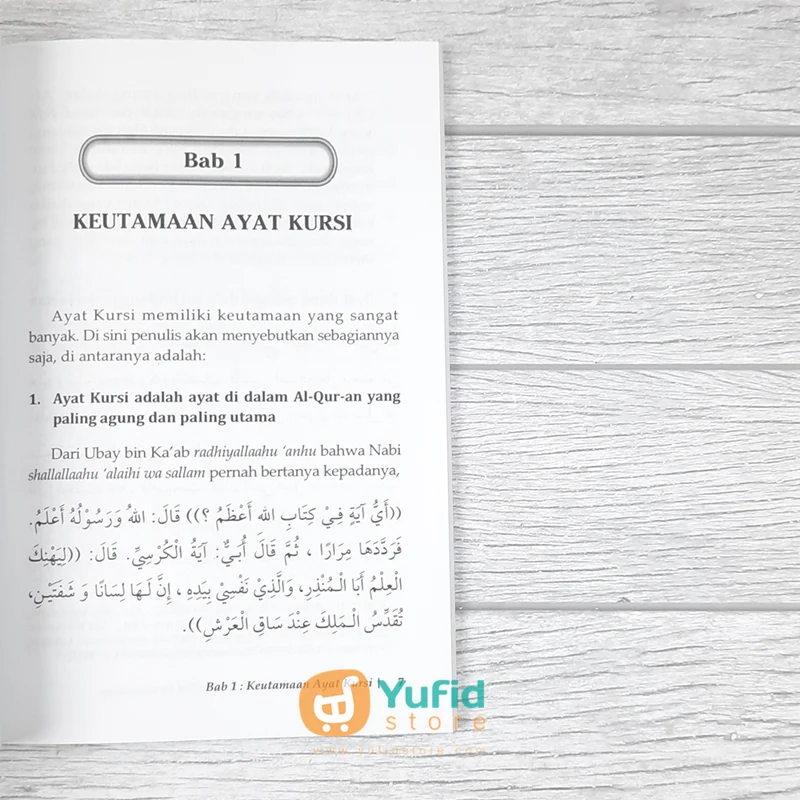 Bab 1
KEUTAMAAN AYAT KURSI
Ayat Kursi memiliki keutamaan yang sangat
banyak. Di sini penulis akan menyebutkan sebagiannya
saja, di antaranya adalah:
1. Ayat Kursi adalah ayat di dalam Al-Qur-an yang
paling agung dan paling utama
Dari Ubay bin Ka'ab radhiyallaahu 'anhu bahwa Nabi
shallallaahu 'alaihi wa sallam pernah bertanya kepadanya,
((أَيُّ آيَةٍ فِيْ كِتَابِ اللهِ أَعْظَمُ ؟)) قَالَ: اللهُ وَرَسُوْلُهُ أَعْلَمُ.
فَرَدَّدَهَا مِرَارًا ، ثُمَّ قَالَ أُبَيٌّ: آيَةُ الْكُرْسِيِّ. قَالَ: ((لِيَهْنِكَ
الْعِلْمُ أَبَا الْـمُنْذِرِ، وَالَّذِيْ نَفْسِيْ بِيَدِهِ ، إِنَّ لَـهَا لِسَانًا وَ شَفَتَيْنِ،
تُقَدِّسُ الْـمَلِكَ عِنْدَ سَاقِ الْعَرْشِ)).
Bab 1 : Keutamaan Ayat Kursi | 7
Yufid
store
www.yufidstore.com